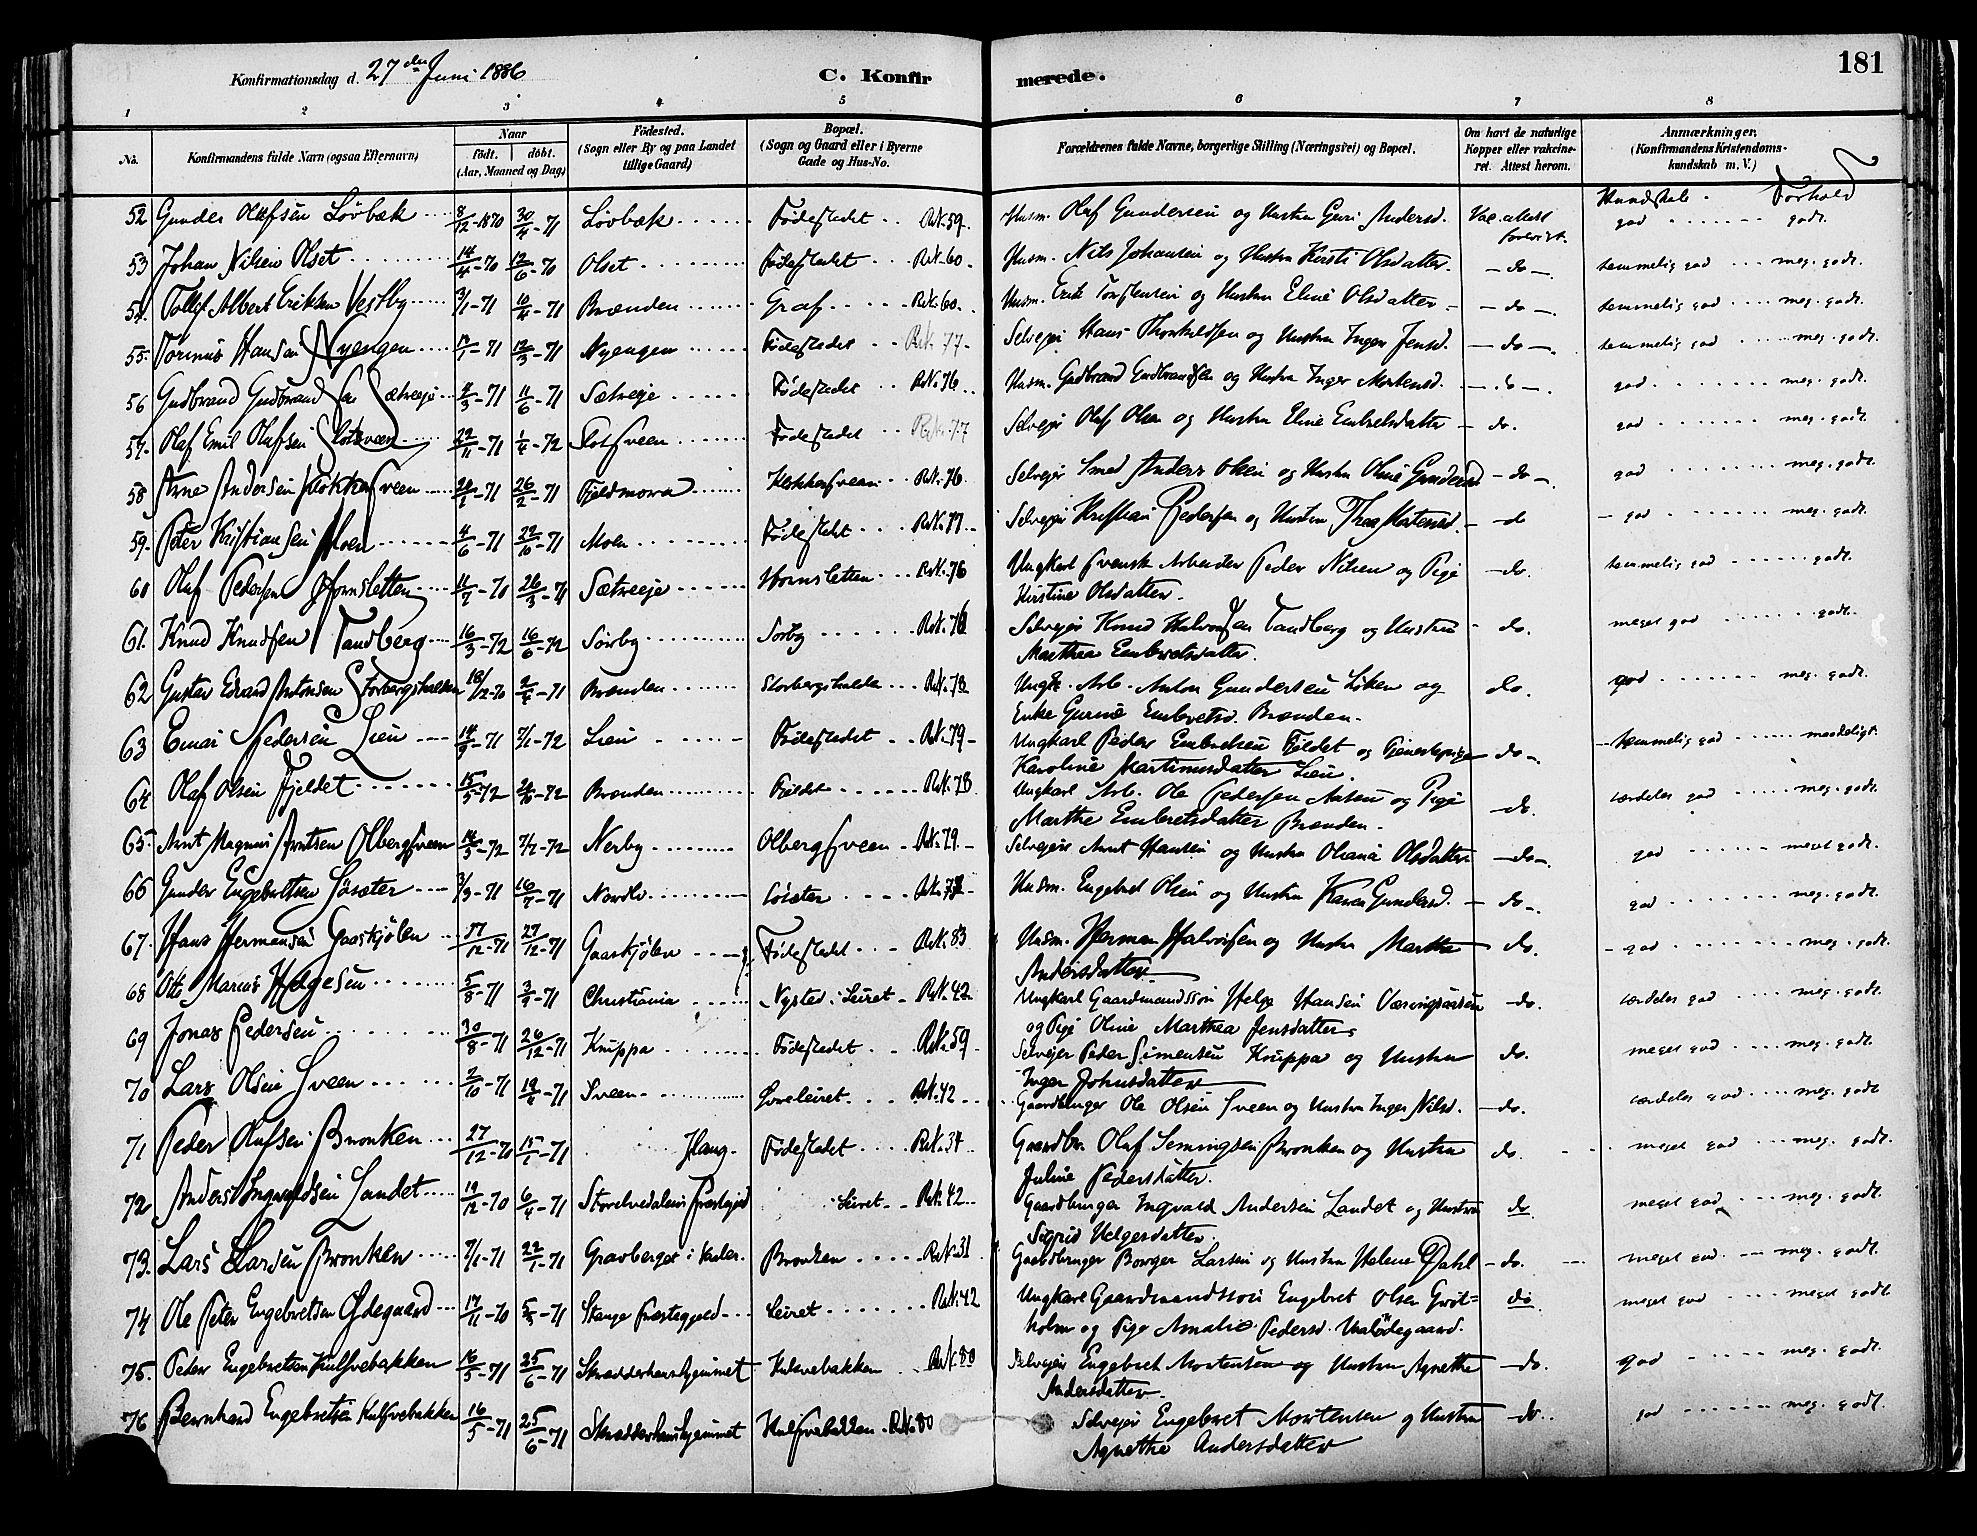 Konfirmationsdag d. 27 den Juni 1886 C. Konfirmerede. 181
1 2 3 4 5 6 7 8
No. Konfirmandens fulde Navn (ogsaa Efternavn) Naar født. døbt. (Aar, Maaned og Dag) Fødested. (Sogn eller By og paa Landet tillige Gaard) Bopæl. (Sogn og Gaard eller i Byerne Gade og Hus-No. Forældrenes fulde Navne, borgerlige Stilling (Næringsvei) og Bopæl. Om havt de naturlige Kopper eller vakcineret. Attest herom. Anmærkninger. (Konfirmandens Kristendomskundskab m. V.)
Kundskab. Forhold
52 Gunder Olafsen Lövbæk 8/12-1870 30/4-71 Lövbæk Födestedet Rk. 59. Husm. Olaf Gundersen og Hustru Guri Andersd. Vac. attest forevist. god godt.
53 Johan Nilsen Olset 14/4-70 12/6-70 Olset Födestedet Rk. 60. Husm. Nils Johansen og Hustru Kirsti Olsdatter. do temmelig god meg. godt.
54. Tollef Albert Eriksen Vestby 3/1-71 10/4-71 Brænden Graf Rk. 60. Husm. Erik Torstensen og Hustru Eline Olsdatter do temmelig god meg. godt.
55. Torinus Hansen Nyengen 12/3-71 Nyengen Födestedet Rk. 77 Selvejer Hans Thorkildsen og Hustru Inger Jensd. do temmelig god meg. godt.
56 Gudbrand Gudbrandsen Sætreeje 4/3-71 11/6-71 Sætreeje Födestedet Rk. 76 Husm. Gudbrand Gudbrandsen og Hustru Inger Mortensd. do god meg. godt.
57. Olaf Emil Olafsen Slotsveen 22/11-71 1/4-72 Slotsveen Födestedet Rk. 77 Selvejer Olaf Olsen og Hustru Eline Embretsdatter do. god meg. godt.
58 Arne Andersen Klokkersveen 20/1-71 26/2-71 Fjeldmora Klokkersveen Rk. 76. Selvejer Smed Anders Olsen og Hustru Oline Gundersd do god meg. godt.
59. Peter Kristiansen Moen 4/6-71 22/10-71 Moen Födestedet Rk. 77. Selvejer Kristian Pedersen og Hustru Thea Mortensd. do god meg. godt.
60 Olaf Pedersen Hornsletten 11/7-70 26/3-71 Sætreeje Hornsletten Rk. 76 Ungkarl svensk Arbeider Peder Nilsen og Pige
Kirstine Olsdatter. do. temmelig god godt.
61. Knud Knudsen Tandberg 16/3-72 16/6-72 Sörby Sörby Rk. 78 Selvejer Knud Halvorsen Tandberg og Hustru
Marthea Embretsdatter. do. meget god godt.
62 Gustav Edvard Antonsen Storbergshalden 18/12-70 2/4-71 Brænden Storbergshalden Rk. 78 Ungk. Arb. Anton Gundersen Löken og
Enke Gurine Embretsd. Brænden. do. god meg. godt.
63 Einar Pedersen Lien 14/5-71 7/1-72 Lien Födestedet Rk. 79 Ungkarl Peder Embretsen Fjeldet og Tjenestepige
Karoline Martinusdatter Lien. do temmelig god maadeligt.
64 Olaf Olsen Fjeldet 15/5-72 Brænden Fjeldet Rk. 78 Ungkarl Arb. Ole Pedersen Aasen og Pige
Marthe Embretsdatter Brænden. do. særdeles god meg. godt.
65. Arnt Magnus Arntsen Olbergsveen 14/5-72 7/7-72 Nerby Olbergsveen Rk. 79. Selvejer Arnt Hansen og Hustru Oliana Olsdatter do god meget godt.
66 Gunder Engebretsen Lösæter 3/3-71 16/7-71 Nordlö Lösæter Husm. Engebret Olsen og Hustru Karen Gundersd. do god meg. godt.
67. Hans Hermansen Gaaskjölen 27/12-71 Gaaskjölen Födestedet Rk. 83 Husm. Herman Halvorsen og Hustru Marthe
Andersdatter do. god meg. godt.
68 Otto Marius Helgesen 5/8-71 3/9-71 Christiania Nysted i Leiret Rk. 42 Ungkarl Gaardmandssön Helge Hansen Væringsaasen
og Pige Oline Marthea Jensdatter do. særdeles god meg. godt.
69 Jonas Pedersen 30/8-71 26/12-71 Kruppa Födestedet Rk. 59 Selvejer Peder Simensen Kruppa og Hustru
Inger Johnsdatter do. meget god meg. godt.
70 Lars Olsen Sveen 2/10-71 Sveen Övreleiret Rk. 42 Gaardbruger Ole Olsen Sveen og Hustru Inger Nilsd. do. særdeles god meg. godt
71 Peder Olafsen Bronken 27/12-70 15/1-71 Haug Födestedet Rk. 34 Gaardbr. Olaf Semingsen Bronken og Hustru
Juline Pedersdatter. do. meget god meg. godt.
72 Anders Ingvaldsen Landet 19/12-70 6/4-71 Storelvedalens Præstegjeld Leiret Rk. 42 Gaardbruger Ingvald Andersen Landet og Hustru
Sigrid Helgesdatter do meget god meg. godt.
73. Lars Larsen Bronken 7/1-71 22/1-71 Gravberget i Vaaler. Bronken Rk. 31 Gaardbruger Borger Larsen og Hustru Helene Dahl do. meget god meg. godt.
74 Ole Peter Engebretsen Ödegaard 17/11-70 5/3-71 Stange Præstegjeld Leiret Rk. 42 Ungkarl Gaardmandssön Engebret Olsen Gröt-
holm og Pige Amalie Pedersd. do meget god meget godt
75. Peder Engebretsen Kulsvebakken 16/5-71 25/6-71 Skrædderhanshjemmet Kulsvebakken Rk. 80 Selvejer Engebret Mortensen og Hustru Agnethe
Andersdatter do. god meg. godt.
76 Bernhard Engebretsen Kulsvebakken 16/5-71 25/6-71 Skrædderhanshjemmet Kulsvebakken Rk. 80 Selvejer Engebret Mortensen og Hustru
Agnethe Andersdatter do. god meg. godt.